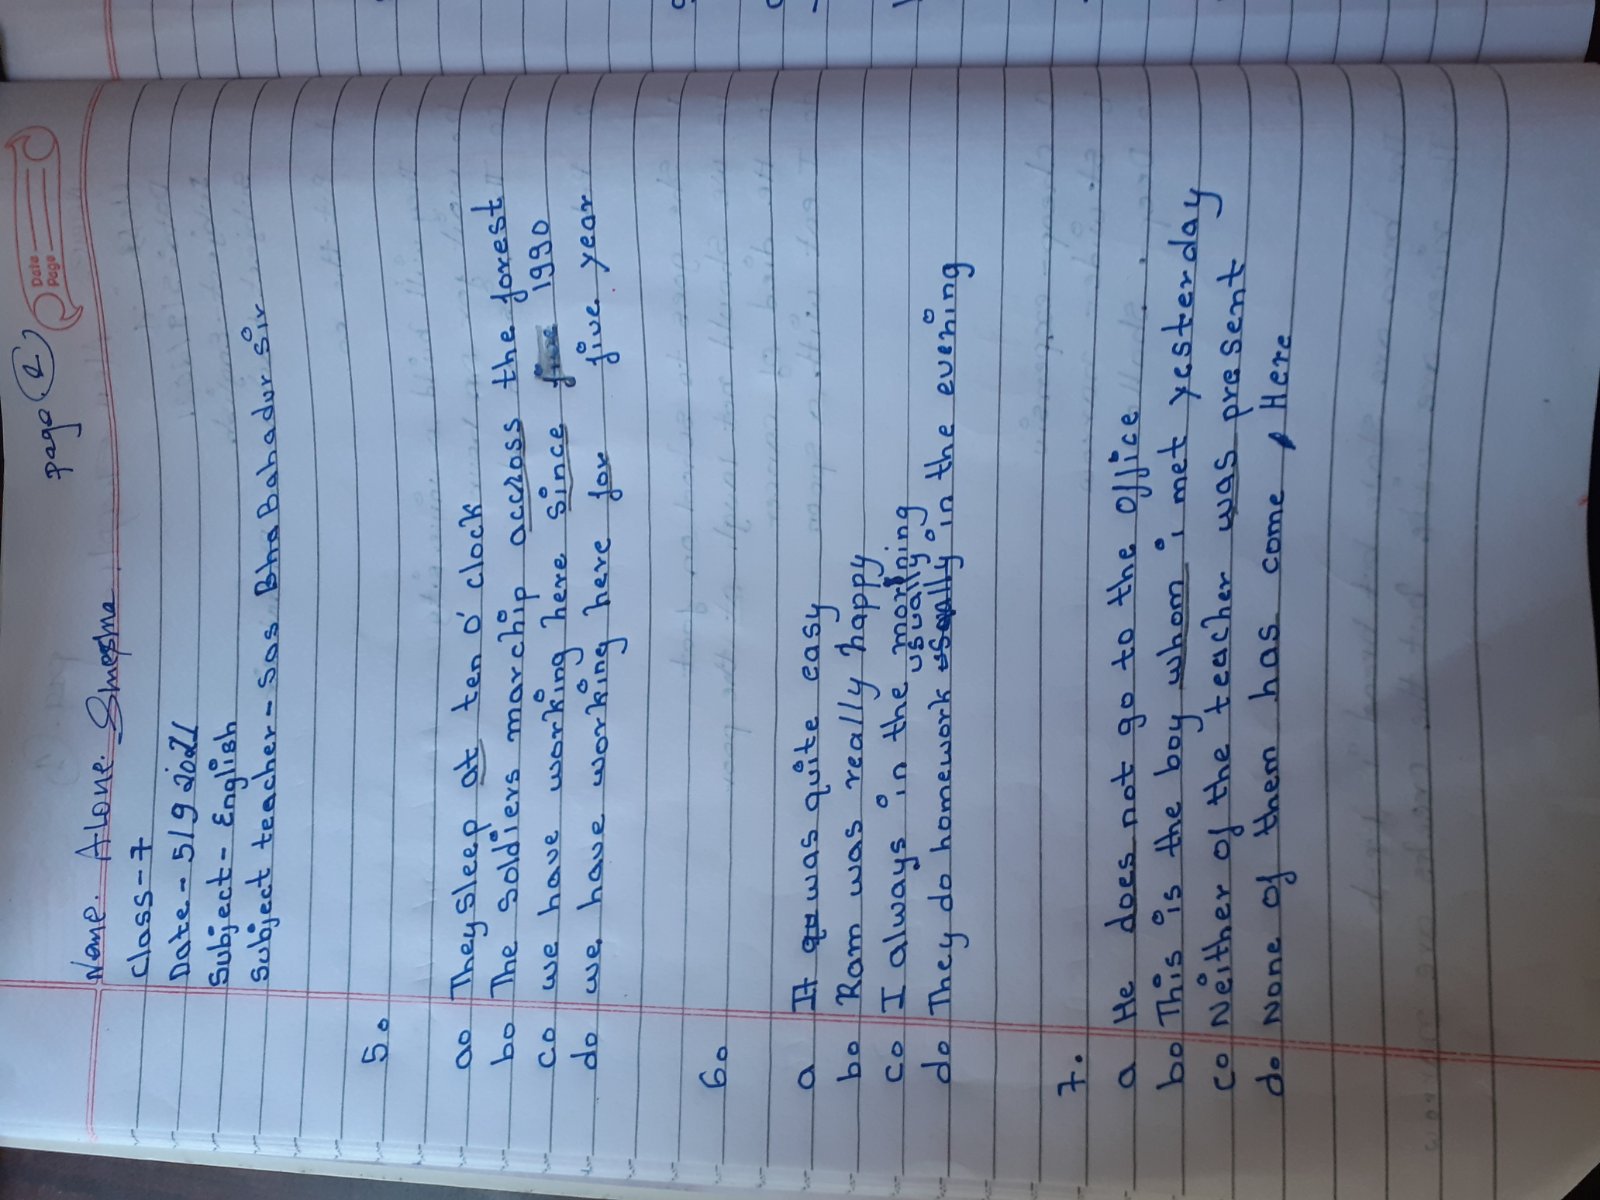 page 2
Date
Page
Name. Alone Shresma
Class-7
Date - 5/9 2021
Subject - English
Subject teacher - Sas Bha Bahadur sir
5.
a. They sleep at ten o'clock
b. The soldiers marchip accross the forest
c. we have working here since five 1990
d. we have working here for five year
6.
a It qu was quite easy
b. Ram was really happy
c. I always in the morning
usually
d. They do homework usaully in the evening
7.
a He does not go to the office
b. This is the boy whom i met yesterday
c. Neither of the teacher was present
d. None of them has come Here